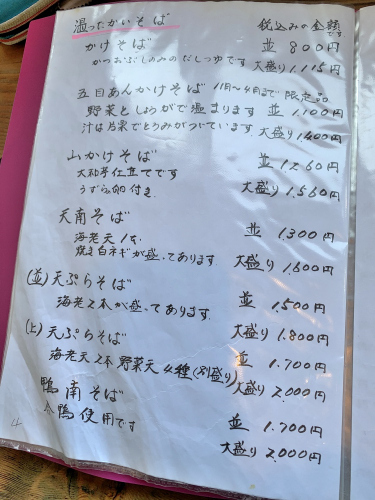 温ったかいそば 税込みの金額です
かけそば 並 800円
かつおぶしのみのだしつゆです 大盛り 1,115円
五目あんかけそば 11月〜4月まで 限定品
野菜としょうがで温まります 並 1,100円
汁は片栗でとろみがついています 大盛り 1,400円
山かけそば 並 1,260円
大和芋仕立てです 大盛り 1,560円
うずら卵付き
天南そば 並 1,300円
海老天1本
焼き白ネギが盛ってあります 大盛り 1,600円
(並)天ぷらそば 並 1,500円
海老2本が盛ってあります 大盛り 1,800円
(上)天ぷらそば 並 1,700円
海老天2本 野菜天4種(別盛り) 大盛り 2,000円
鴨南そば 並 1,700円
合鴨使用です 大盛り 2,000円
4